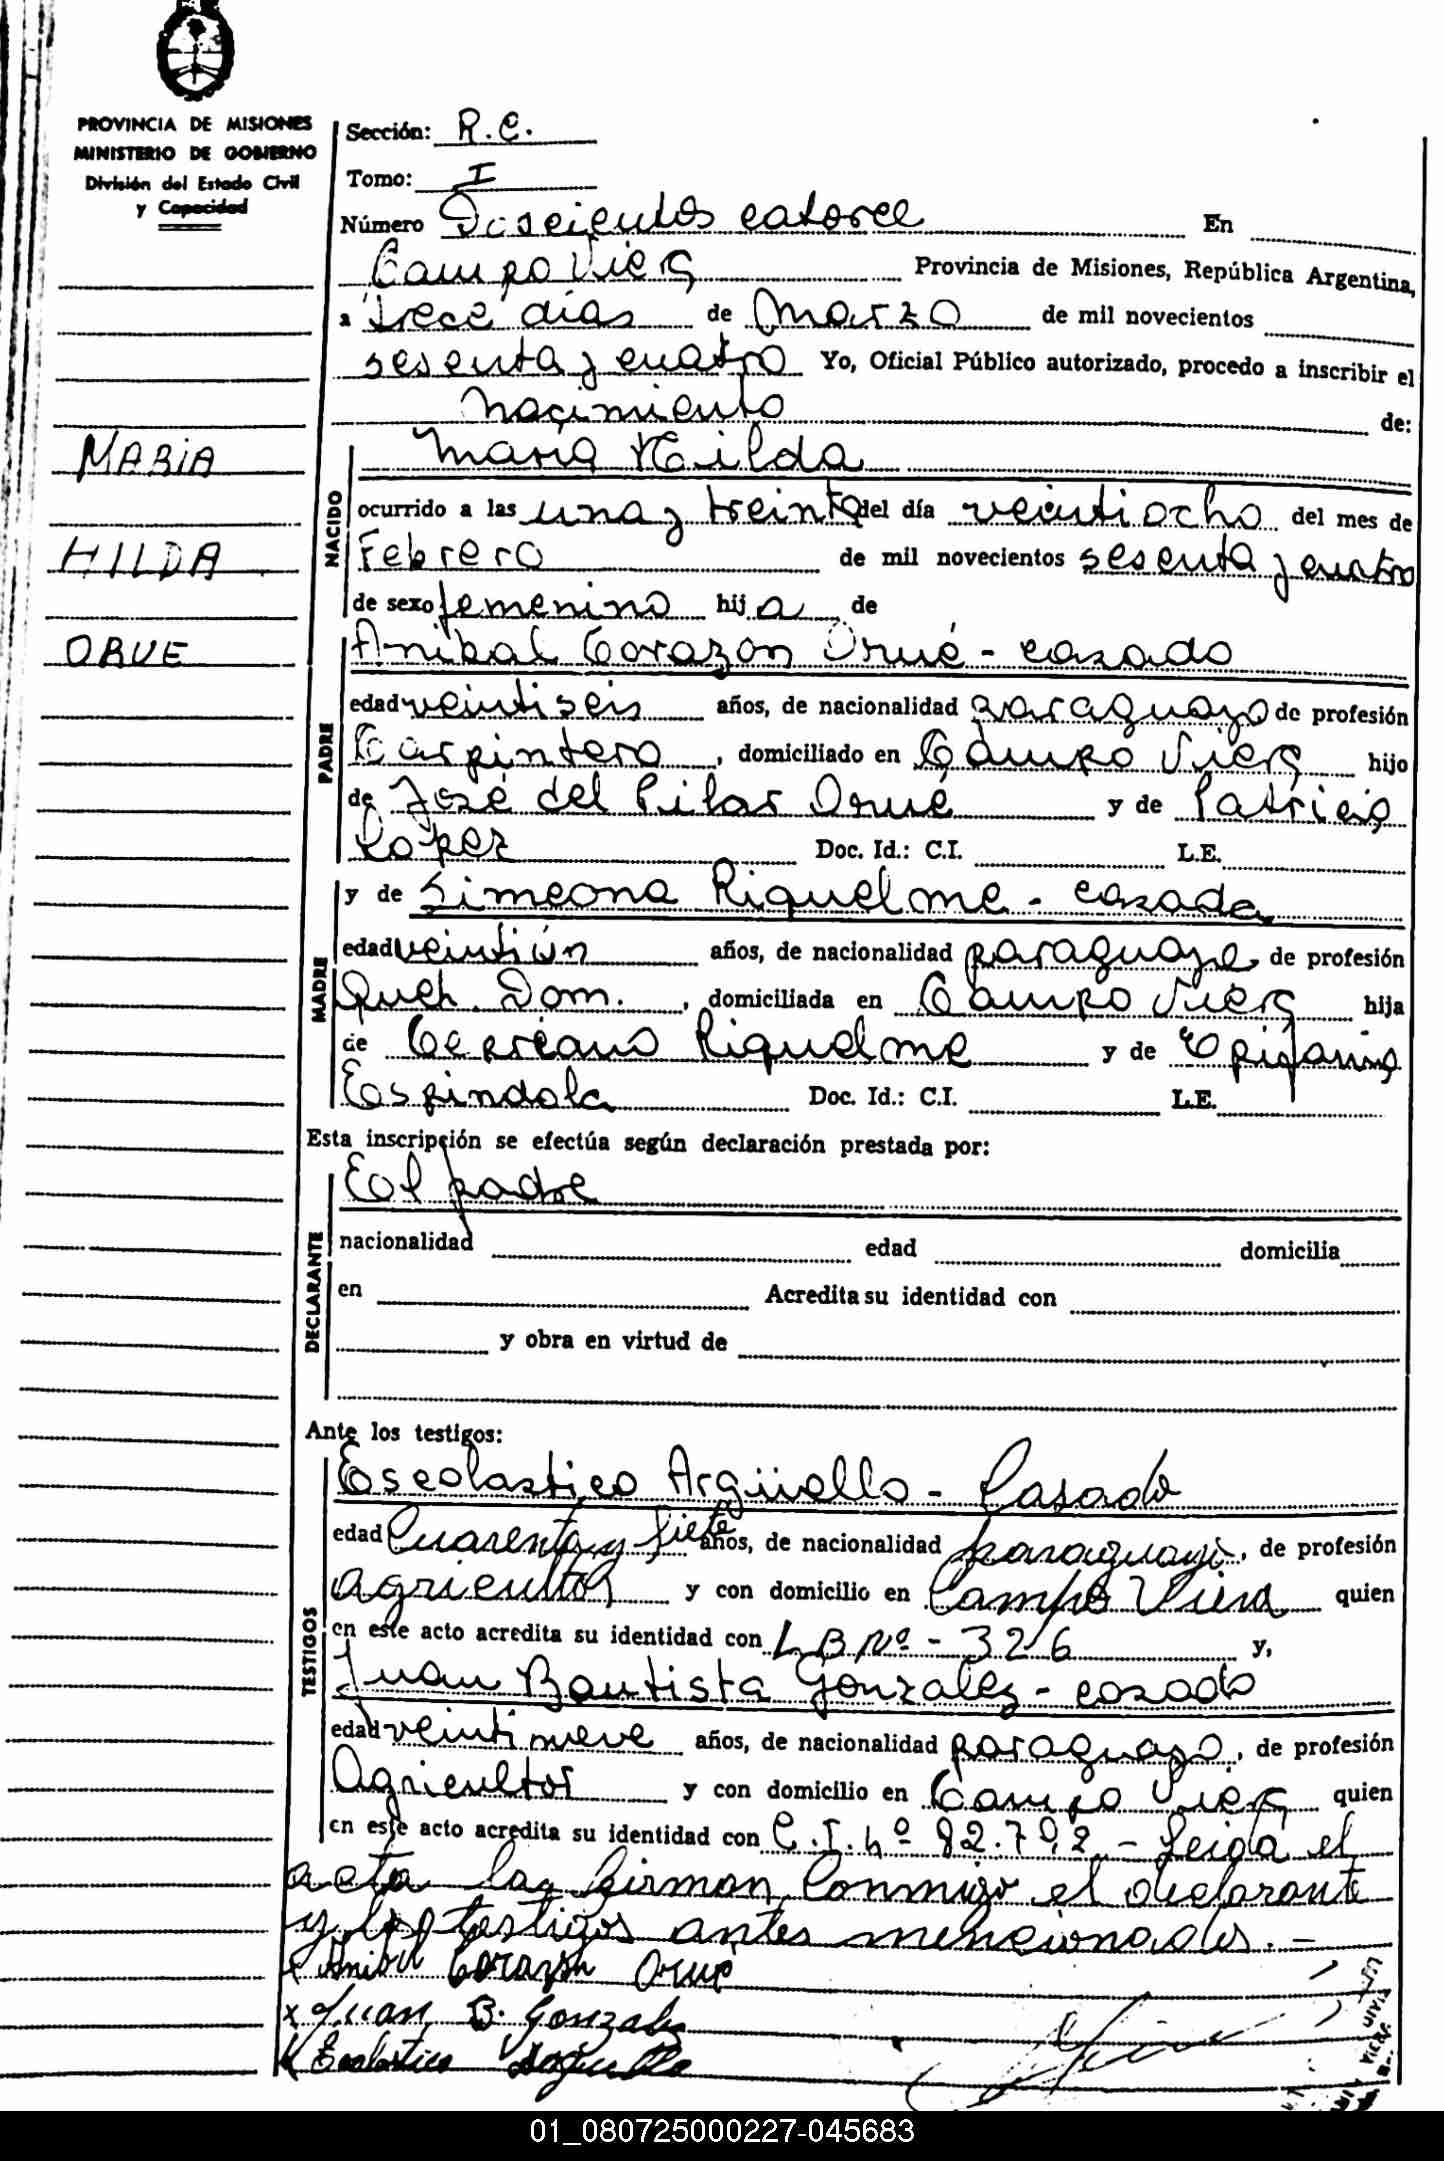 PROVINCIA DE MISIONES
MINISTERIO DE GOBIERNO
División del Estado Civil
y Capacidad
Sección: R.C.
Tomo: I
Número Doscientos catorce En
Campo Viera Provincia de Misiones, República Argentina,
a trece días de Marzo de mil novecientos
sesenta y cuatro Yo, Oficial Público autorizado, procedo a inscribir el
Nacimiento de:
MARIA
HILDA
ORUE
NACIDO
María Hilda
ocurrido a las una y treinta del día veintiocho del mes de
Febrero de mil novecientos sesenta y cuatro
de sexo femenino hija de
PADRE
Anibal Corazon Orué - casado
edad veintiseis años, de nacionalidad paraguayo de profesión
Carpintero, domiciliado en Campo Viera hijo
de José del Pilar Orué y de Patricia
Lopez Doc. Id.: C.I. L.E.
MADRE
y de Simeona Riquelme - casada
edad veintiún años, de nacionalidad paraguaya de profesión
Queh. Dom., domiciliada en Campo Viera hija
de Riquelme y de Epifania
Espindola Doc. Id.: C.I. L.E.
Esta inscripción se efectúa según declaración prestada por:
DECLARANTE
El padre
nacionalidad edad domicilia
en Acredita su identidad con
y obra en virtud de
Ante los testigos:
TESTIGOS
Escolastico Argüello - Casado
edad Cuarenta y siete años, de nacionalidad paraguayo, de profesión
agricultor y con domicilio en Campo Viera quien
en este acto acredita su identidad con L B Nº - 326 y,
Juan Bautista Gonzalez - casado
edad veintinueve años, de nacionalidad paraguayo, de profesión
Agricultor y con domicilio en Campo Viera quien
en este acto acredita su identidad con C.I. Nº 82.792 - Leida el
acta la firman Conmigo el declarante
y los testigos antes mencionados. -
x Anibal Corazon Orué
x Juan B. Gonzalez
x Escolastico Arguello
01_080725000227-045683